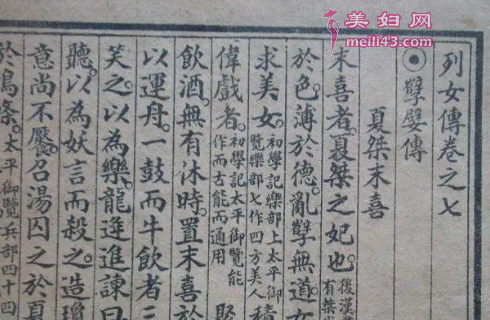 美妇网
meili43.com
列女傳卷之七
孽嬖傳
夏桀末喜
末喜者。夏桀之妃也。後漢
有桀
於色。薄於德。亂孽無道。女
求美女。初學記樂部上太平御
覽樂部七作四方美人
積
偉戲者。初學記太平御覽能
作而古能而通用
聚
飲酒。無有休時。置末喜於
以運舟。一鼓而牛飲者三
笑之以為樂。龍逄進諫曰
聽。以為妖言而殺之。造瓊
意尚不饜。召湯囚之於夏
於鳥條。太平御覽兵部四十四